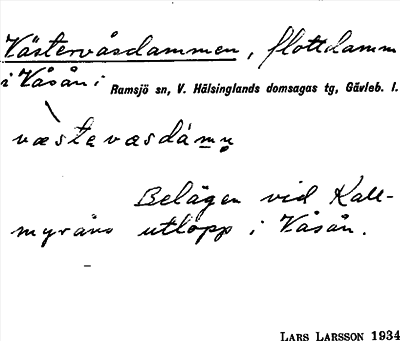 Västervåsdammen, flottdamm
i Våsån i Ramsjö sn, V. Hälsinglands domsagas tg, Gävleb. l.
væ̀stevasdám̥n̥
Belägen vid Kall-
myråns utlopp i Våsån.
LARS LARSSON 1934